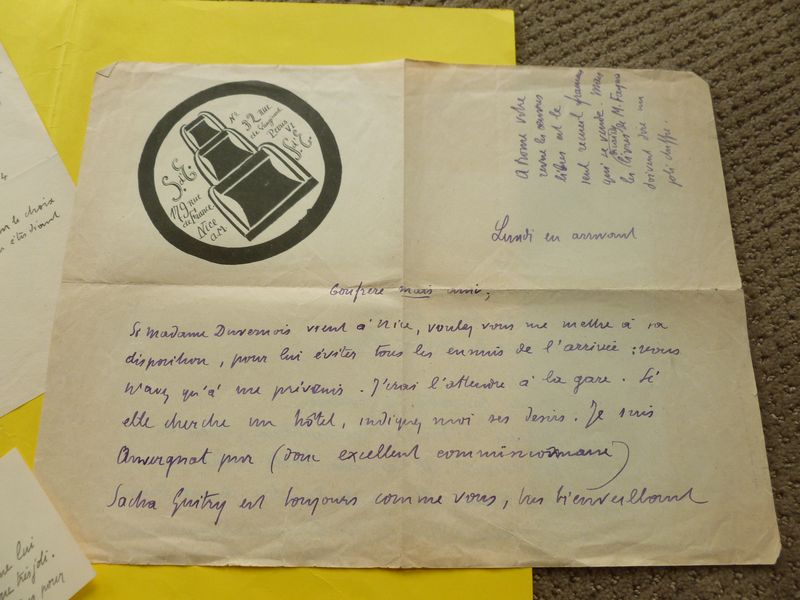 32 RUE
de Vaugirard
PARIS VI
179 RUE
de France
Nice
A.M.
seul recueil français
qui se vende. Mais
les livres de M.
doivent être un
joli chiffre.
Lundi en arrivant
Confrère mais ami,
Si Madame Duvernois vient à Nice, voulez vous me mettre à sa
disposition, pour lui éviter tous les ennuis de l'arrivée : vous
n'avez qu'à me prévenir. J'irai l'attendre à la gare. Si
elle cherche un hôtel, indiquez moi ses désirs. Je suis
Auvergnat pur (donc excellent commissionnaire)
Sacha Guitry est toujours comme vous, très bienveillant
4
le choix
lui
très joli.
pour